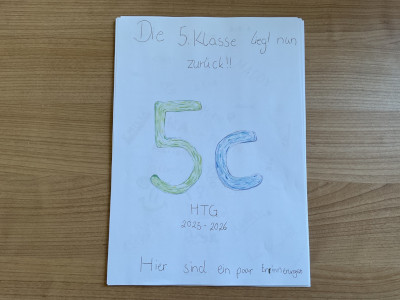 Die 5. Klasse liegt nun
zurück!!
5c
HTG
2025-2026
Hier sind ein paar Erinnerungen